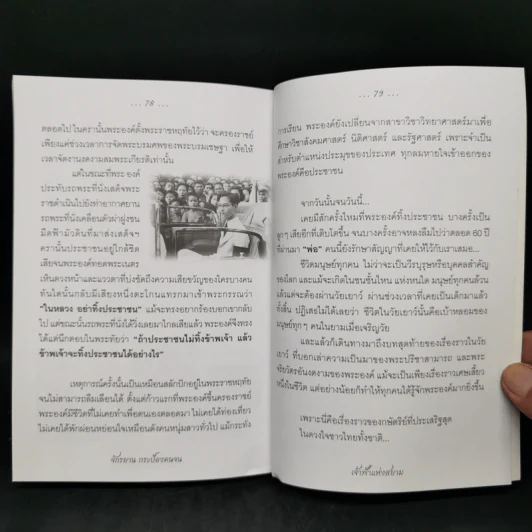 ... 78 ...
ตลอดไป ในครานั้นพระองค์ตั้งพระราชหฤทัยไว้ว่า จะครองราชย์
เพียงแค่ช่วงเวลาการจัดพระบรมศพของพระบรมเชษฐา เพื่อให้
เวลาจัดงานงดงามสมพระเกียรติเท่านั้น
แต่ในขณะที่พระองค์
ประทับรถพระที่นั่งเสด็จพระ
ราชดำเนินไปยังท่าอากาศยาน
รถพระที่นั่งเคลื่อนตัวผ่าฝูงชน
มืดฟ้ามัวดินที่มาส่งเสด็จฯ
ครานั้นประชาชนอยู่ใกล้ชิด
เสียจนพระองค์ทอดพระเนตร
เห็นดวงหน้าและแววตาที่บ่งชัดถึงความเสียขวัญของใครบางคน
ทันใดนั้นกลับมีเสียงหนึ่งตะโกนแทรกมาเข้าพระกรรณว่า
“ในหลวง อย่าทิ้งประชาชน” แม้จะทรงอยากร้องบอกเขากลับ
ไป แต่ขณะนั้นรถพระที่นั่งได้วิ่งเลยมาไกลเสียแล้ว พระองค์จึงทรง
ได้แต่นึกตอบในพระทัยว่า “ถ้าประชาชนไม่ทิ้งข้าพเจ้า แล้ว
ข้าพเจ้าจะทิ้งประชาชนได้อย่างไร”
เหตุการณ์ครั้งนั้นเป็นเหมือนสลักปักอยู่ในพระราชหฤทัย
จนไม่สามารถลืมเลือนได้ ตั้งแต่ก้าวแรกที่พระองค์ขึ้นครองราชย์
พระองค์มีชีวิตที่ไม่เคยทำเพื่อตนเองตลอดมา ไม่เคยได้ท่องเที่ยว
ไม่เคยได้พักผ่อนหย่อนใจเหมือนดังคนหนุ่มสาวทั่วไป แม้กระทั่ง
จักรยาน กระเบื้อง
... 79 ...
การเรียน พระองค์ยังเปลี่ยนจากสาขาวิชาวิทยาศาสตร์มาเพื่อ
ศึกษาวิชาสังคมศาสตร์ นิติศาสตร์ และรัฐศาสตร์ เพราะจำเป็น
สำหรับตำแหน่งประมุขของประเทศ ทุกลมหายใจเข้าออกของ
พระองค์คือประชาชน
จากวันนั้นจนวันนี้...
เคยมีสักครั้งไหมที่พระองค์ทิ้งประชาชน บางครั้งเป็น
ลูกๆ เสียอีกที่เติบโตขึ้น จนบางครั้งอาจหลงลืมไปว่าตลอด 60 ปี
ที่ผ่านมา “พ่อ” คนนี้ยังรักษาสัญญาที่เคยให้ไว้กับเราเสมอ...
ชีวิตมนุษย์ทุกคน ไม่ว่าจะเป็นวีรบุรุษหรือบุคคลสำคัญ
ของโลก และแม้จะเกิดในชนชั้นไหน แห่งหนใด มนุษย์ทุกคนล้วน
แล้วแต่จะต้องผ่านวัยเยาว์ ผ่านช่วงเวลาที่เคยเป็นเด็กมาแล้ว
ทั้งสิ้น ปฏิเสธไม่ได้เลยว่า ชีวิตในวัยเยาว์นั้นคือเบ้าหลอมของ
มนุษย์ทุกๆ คนในยามเมื่อเจริญวัย
และแล้วก็เดินทางมาถึงบทสุดท้ายของเรื่องราวในวัย
เยาว์ ที่บอกเล่าความเป็นมาของพระปรีชาสามารถ และพระ
จริยวัตรอันงดงามของพระองค์ แม้จะเป็นเพียงเรื่องราวเศษเสี้ยว
หนึ่งในชีวิต แต่อย่างน้อยก็ทำให้ทุกคนได้รู้จักพระองค์มากยิ่งขึ้น
เพราะนี่คือเรื่องราวของกษัตริย์ที่ประเสริฐสุด
ในดวงใจชาวไทยทั้งชาติ...
เจ้าฟ้าแห่งสยาม